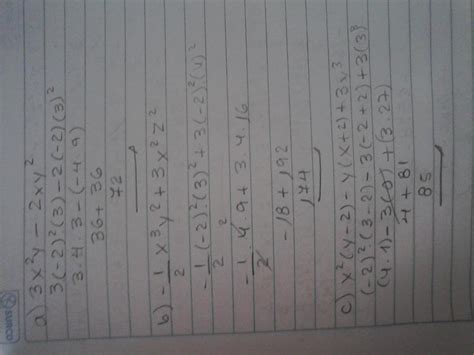 SURCO
a) 3x²y - 2xy²
3(-2)²(3) - 2(-2)(3)²
3.4.3 - (-4.9)
36 + 36
72
b) - 1/2 x³y² + 3x²z²
- 1/2 (-2)²(3)² + 3(-2)²(4)²
- 1/2 4.9 + 3.4.16
-18 + 192
174
c) x²(y-2) - y(x+2) + 3y³
(-2)²(3-2) - 3(-2+2) + 3(3³
(4.1) - 3(0) + (3.27)
4 + 81
85